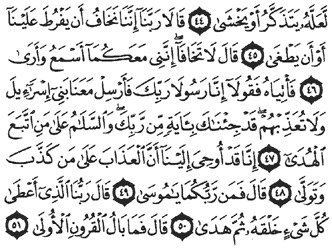 لَّعَلَّهُۥ يَتَذَكَّرُ أَوْ يَخْشَىٰ ٤٤ قَالَا رَبَّنَآ إِنَّنَا نَخَافُ أَن يَفْرُطَ عَلَيْنَآ
أَوْ أَن يَطْغَىٰ ٤٥ قَالَ لَا تَخَافَآ إِنَّنِى مَعَكُمَآ أَسْمَعُ وَأَرَىٰ
٤٦ فَأْتِيَاهُ فَقُولَآ إِنَّا رَسُولَا رَبِّكَ فَأَرْسِلْ مَعَنَا بَنِىٓ إِسْرَٰٓءِيلَ
وَلَا تُعَذِّبْهُمْ قَدْ جِئْنَٰكَ بِـَٔايَةٍ مِّن رَّبِّكَ وَٱلسَّلَٰمُ عَلَىٰ مَنِ ٱتَّبَعَ
ٱلْهُدَىٰٓ ٤٧ إِنَّا قَدْ أُوحِىَ إِلَيْنَآ أَنَّ ٱلْعَذَابَ عَلَىٰ مَن كَذَّبَ
وَتَوَلَّىٰ ٤٨ قَالَ فَمَن رَّبُّكُمَا يَٰمُوسَىٰ ٤٩ قَالَ رَبُّنَا ٱلَّذِىٓ أَعْطَىٰ
كُلَّ شَىْءٍ خَلْقَهُۥ ثُمَّ هَدَىٰ ٥٠ قَالَ فَمَا بَالُ ٱلْقُرُونِ ٱلْأُولَىٰ ٥١